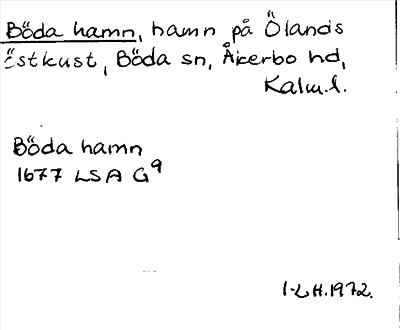 Böda hamn, hamn på Ölands
Östkust, Böda sn, Åkerbo hd,
Kalm.l.
Böda hamn
1677 LSA G9
I-LH.1972.